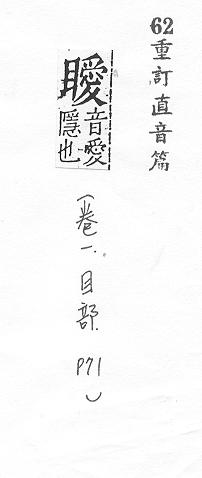 62重訂直音篇
瞹
音愛
隱也
(卷一.目部.P71)